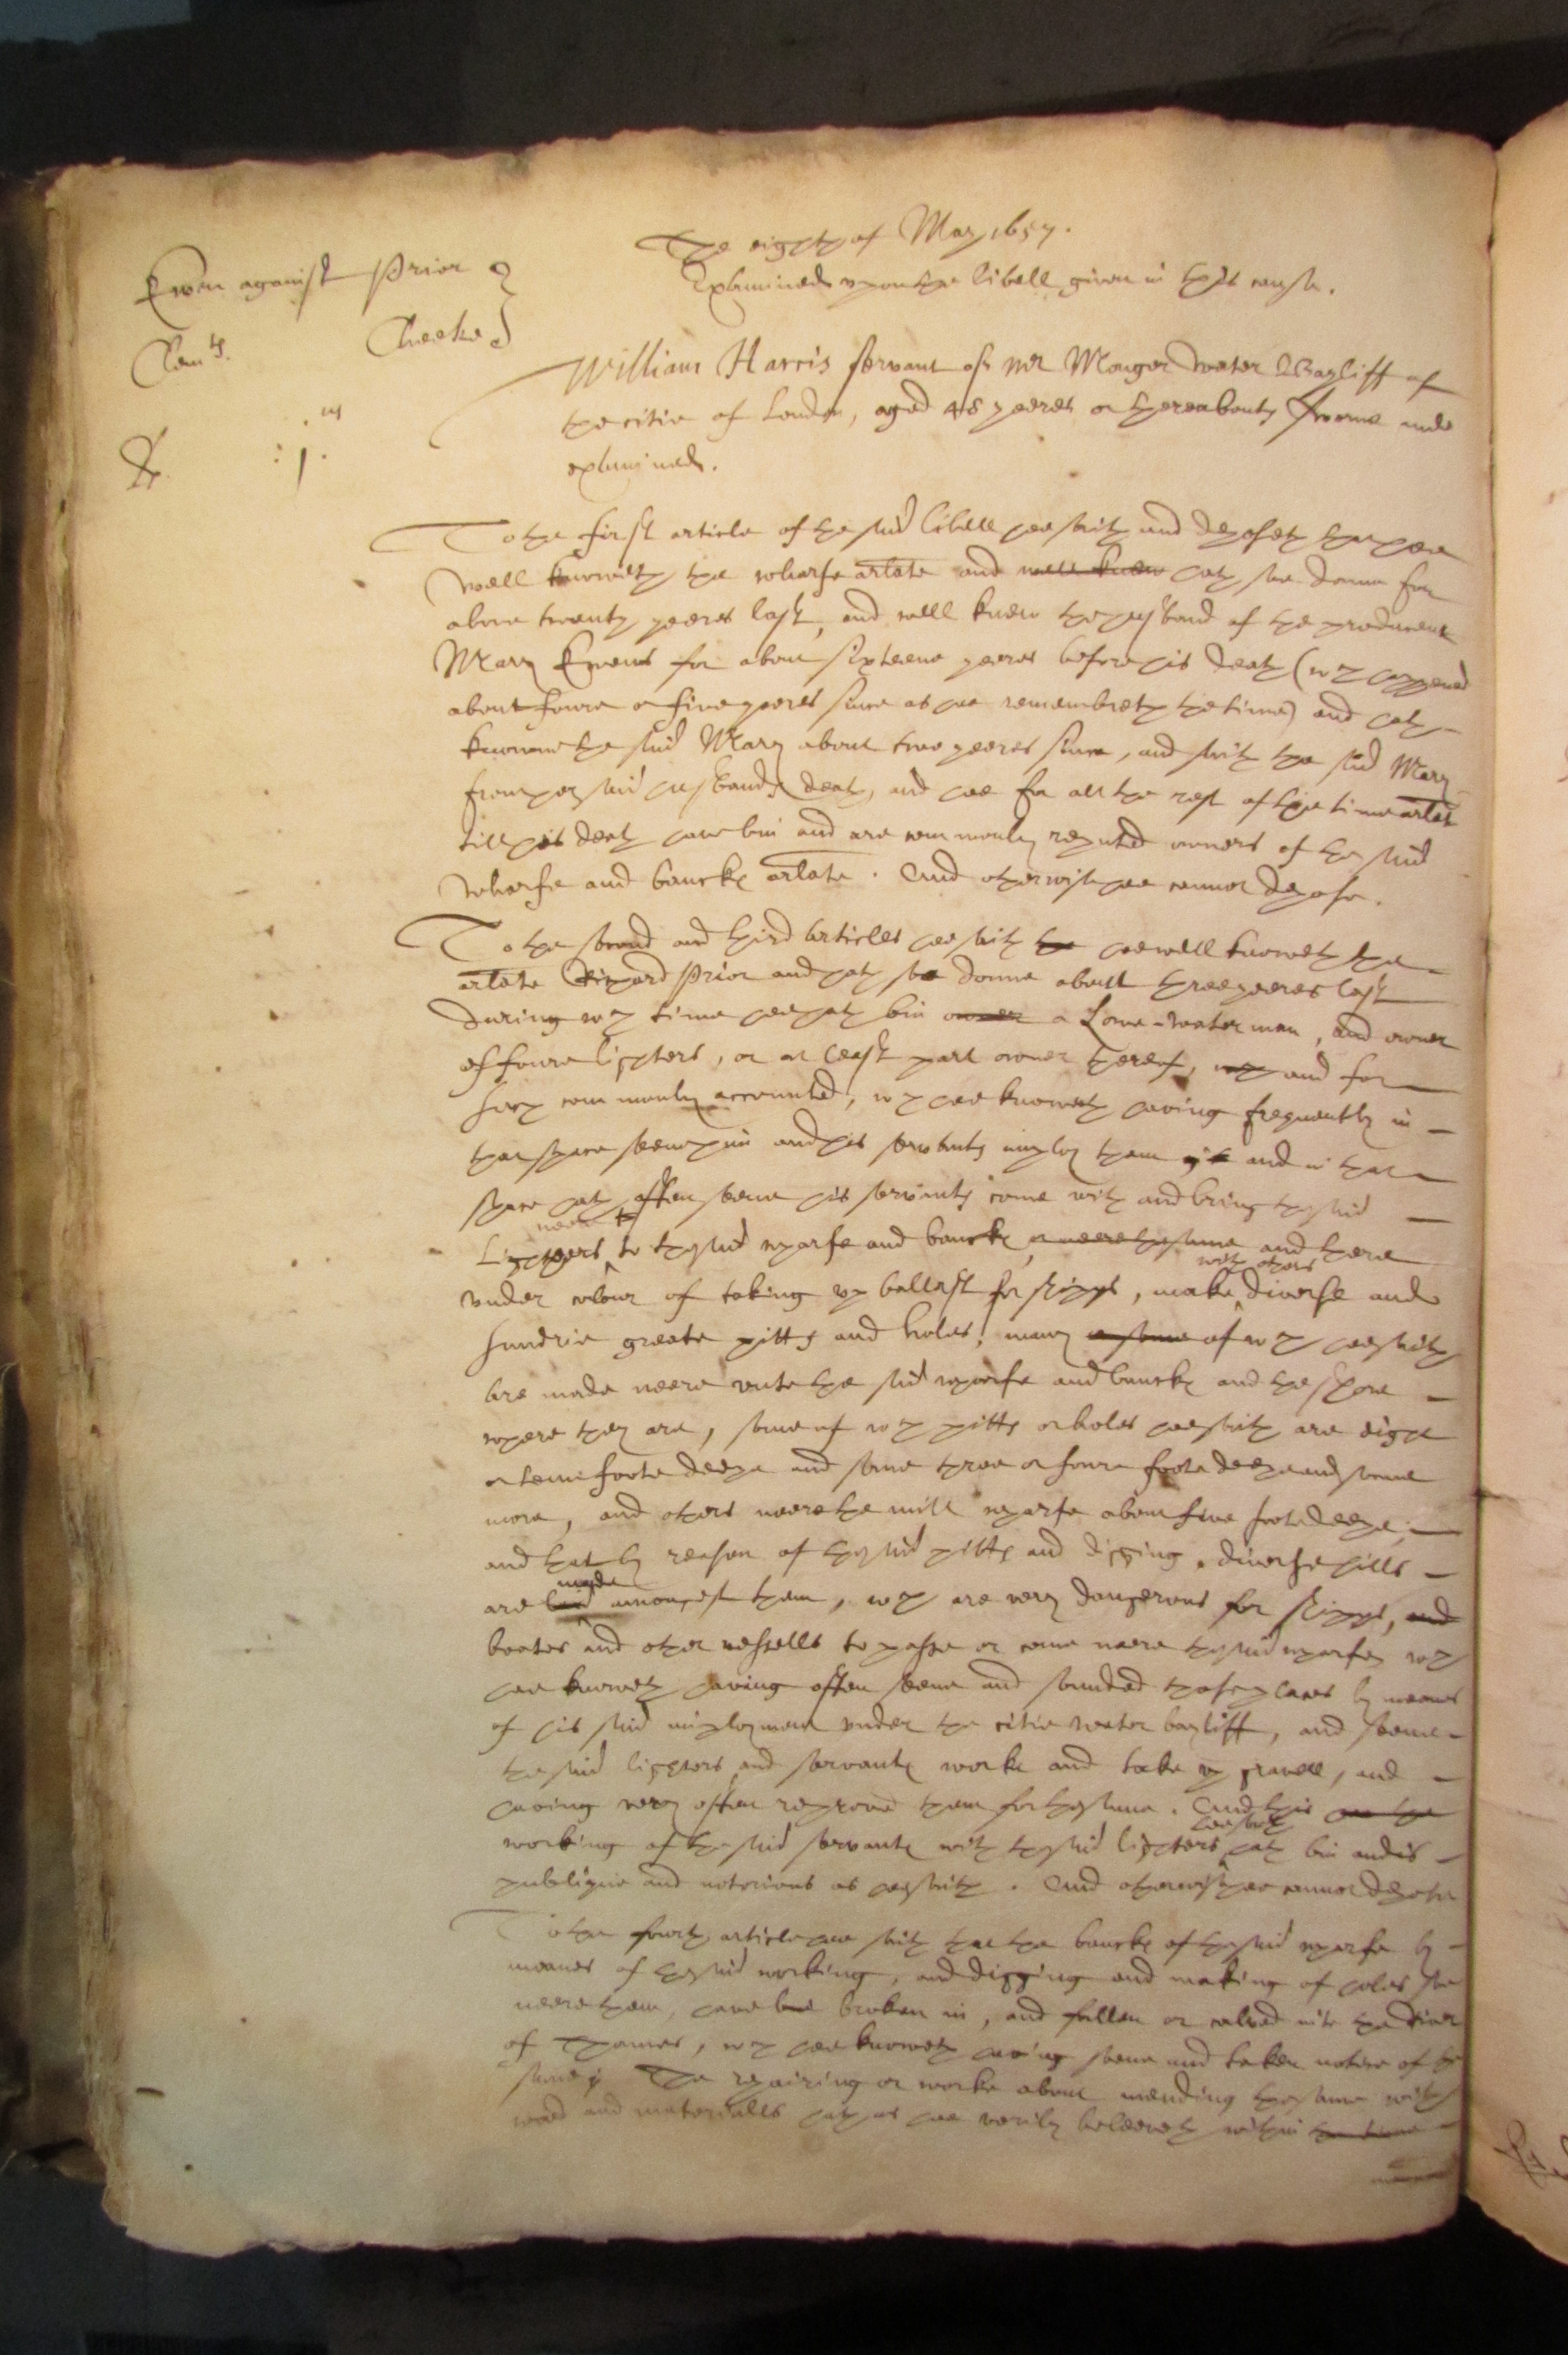 The eighth of May 1657.
Examined upon the libell given in this cause.
Ewen against Prior
Clem^ts. Cheeke
William Harris servant of Mr Mauger water Bayliff of
the citie of London, aged 48 yeeres or thereabouts sworne and
examined.
:1.
To the first article of the said libell hee saith and deposeth that hee
well knoweth the wharfe arlate and well knew hath soe donne for
above twenty yeeres last, and well knew the husband of the producent
Mary Ewens for about sixteene yeeres before his death (w^ch happened
about foure or five yeeres since as hee remembreth the time) and hath
knowne the said Mary about two yeeres since, and saith the said Mary
from her said husbands death, and hee for all the rest of the time arlate
till his death have bin and are commonly reputed owners of the said
wharfe and bancks arlate. And otherwise hee cannot depose.
To the second and third articles hee saith the hee well knoweth the
arlate Richard Prior and hath soe donne about three yeeres last
during w^ch time hee hath bin owner a Lowe-water man, and owner
of foure lighters, or at least part owner thereof, w^ch and for
such commonly accounted, w^ch hee knoweth having frequently in
that space seene him and his servants imploy them and in that
space hath often seene his servants come with and bring the said
neere to
Lighters to the said wharfe and bancks or neere the same and there
with others
under colour of taking up ballast for shipps, make diverse and
sundrie greate pitts and holes, many or some of w^ch hee saith
are made neere unto the said wharfe and bancks and the shore
where they are, some of w^ch pitts or holes hee saith are eight
or tenn foote deepe and some three or foure foote deepe and some
more, and others neere the mill wharfe about five foote deepe,
and that by reason of the said pitts and digging, diverse hills
made
are amongest them, w^ch are very dangerous for shipps, and
boates and other vessells to passe or come neere the said wharfe, w^ch
hee knoweth having often seene and sounded those places by meanes
of his said imployment under the citie water bayliff, and seene
the said lighters and servants worke and take up gravell, and
having very often reproved them for the same. And this
hee saith
working of the said servants with the said lighters hath bin and is
publique and notorious as hee saith. And otherwise hee cannot depose
To the fourth article hee saith that the bancks of the said wharfe by
meanes of the said working, and digging and making of holes soe
neere them, have bin broken in, and fallen or calved into the River
of Thames, w^ch hee knoweth having seene and taken notice of the
same. The repairing or worke about mending the same with
wood and materialls hath as hee verily beleeveth within the time